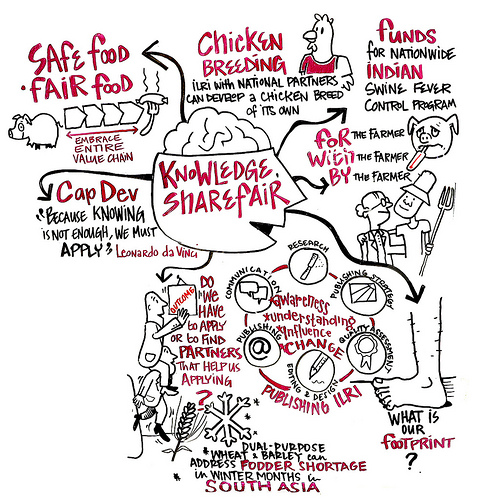 SAFE food
.FAIR food
EMBRACE
ENTIRE
VALUE CHAIN
CHicKEN
BREEDING
iLRi with NATIONAL PARTNERS
CAN DEVELOP A CHICKEN BREED
of iTS OWN
fUNDS
foR NATIONWIDE
INDIAN
SWINE FEVER
CONTROL PROGRAM
foR THE FARMER
WiTH THE FARMER
BY THE FARMER
KNOWLEDGE.
SHAREfAiR
Cap Dev
"BECAUSE KNOWING
IS NOT ENOUGH, WE MUST
APPLY" Leonardo da Vinci
OUTCOME
DO
"WE
HAVE
to APPLY
OR to FIND
PARTNERS
THAT HELP US
APPLYING
?
RESEARCH
PUBLISHING STRATEGY
QUALITY ASSESSMENT
EDITING & DESIGN
PUBLISHING
@
COMMUNICATION
*awareness
*understanding
*influence
*CHANGE
PUBLISHING ILRI
WHAT IS
OUR
fooTPRINT
?
* DUAL-PURPOSE
* WHEAT & BARLEY can
ADDRESS FODDER SHORTAGE
* in WINTER MONTHS in
SOUTH ASIA